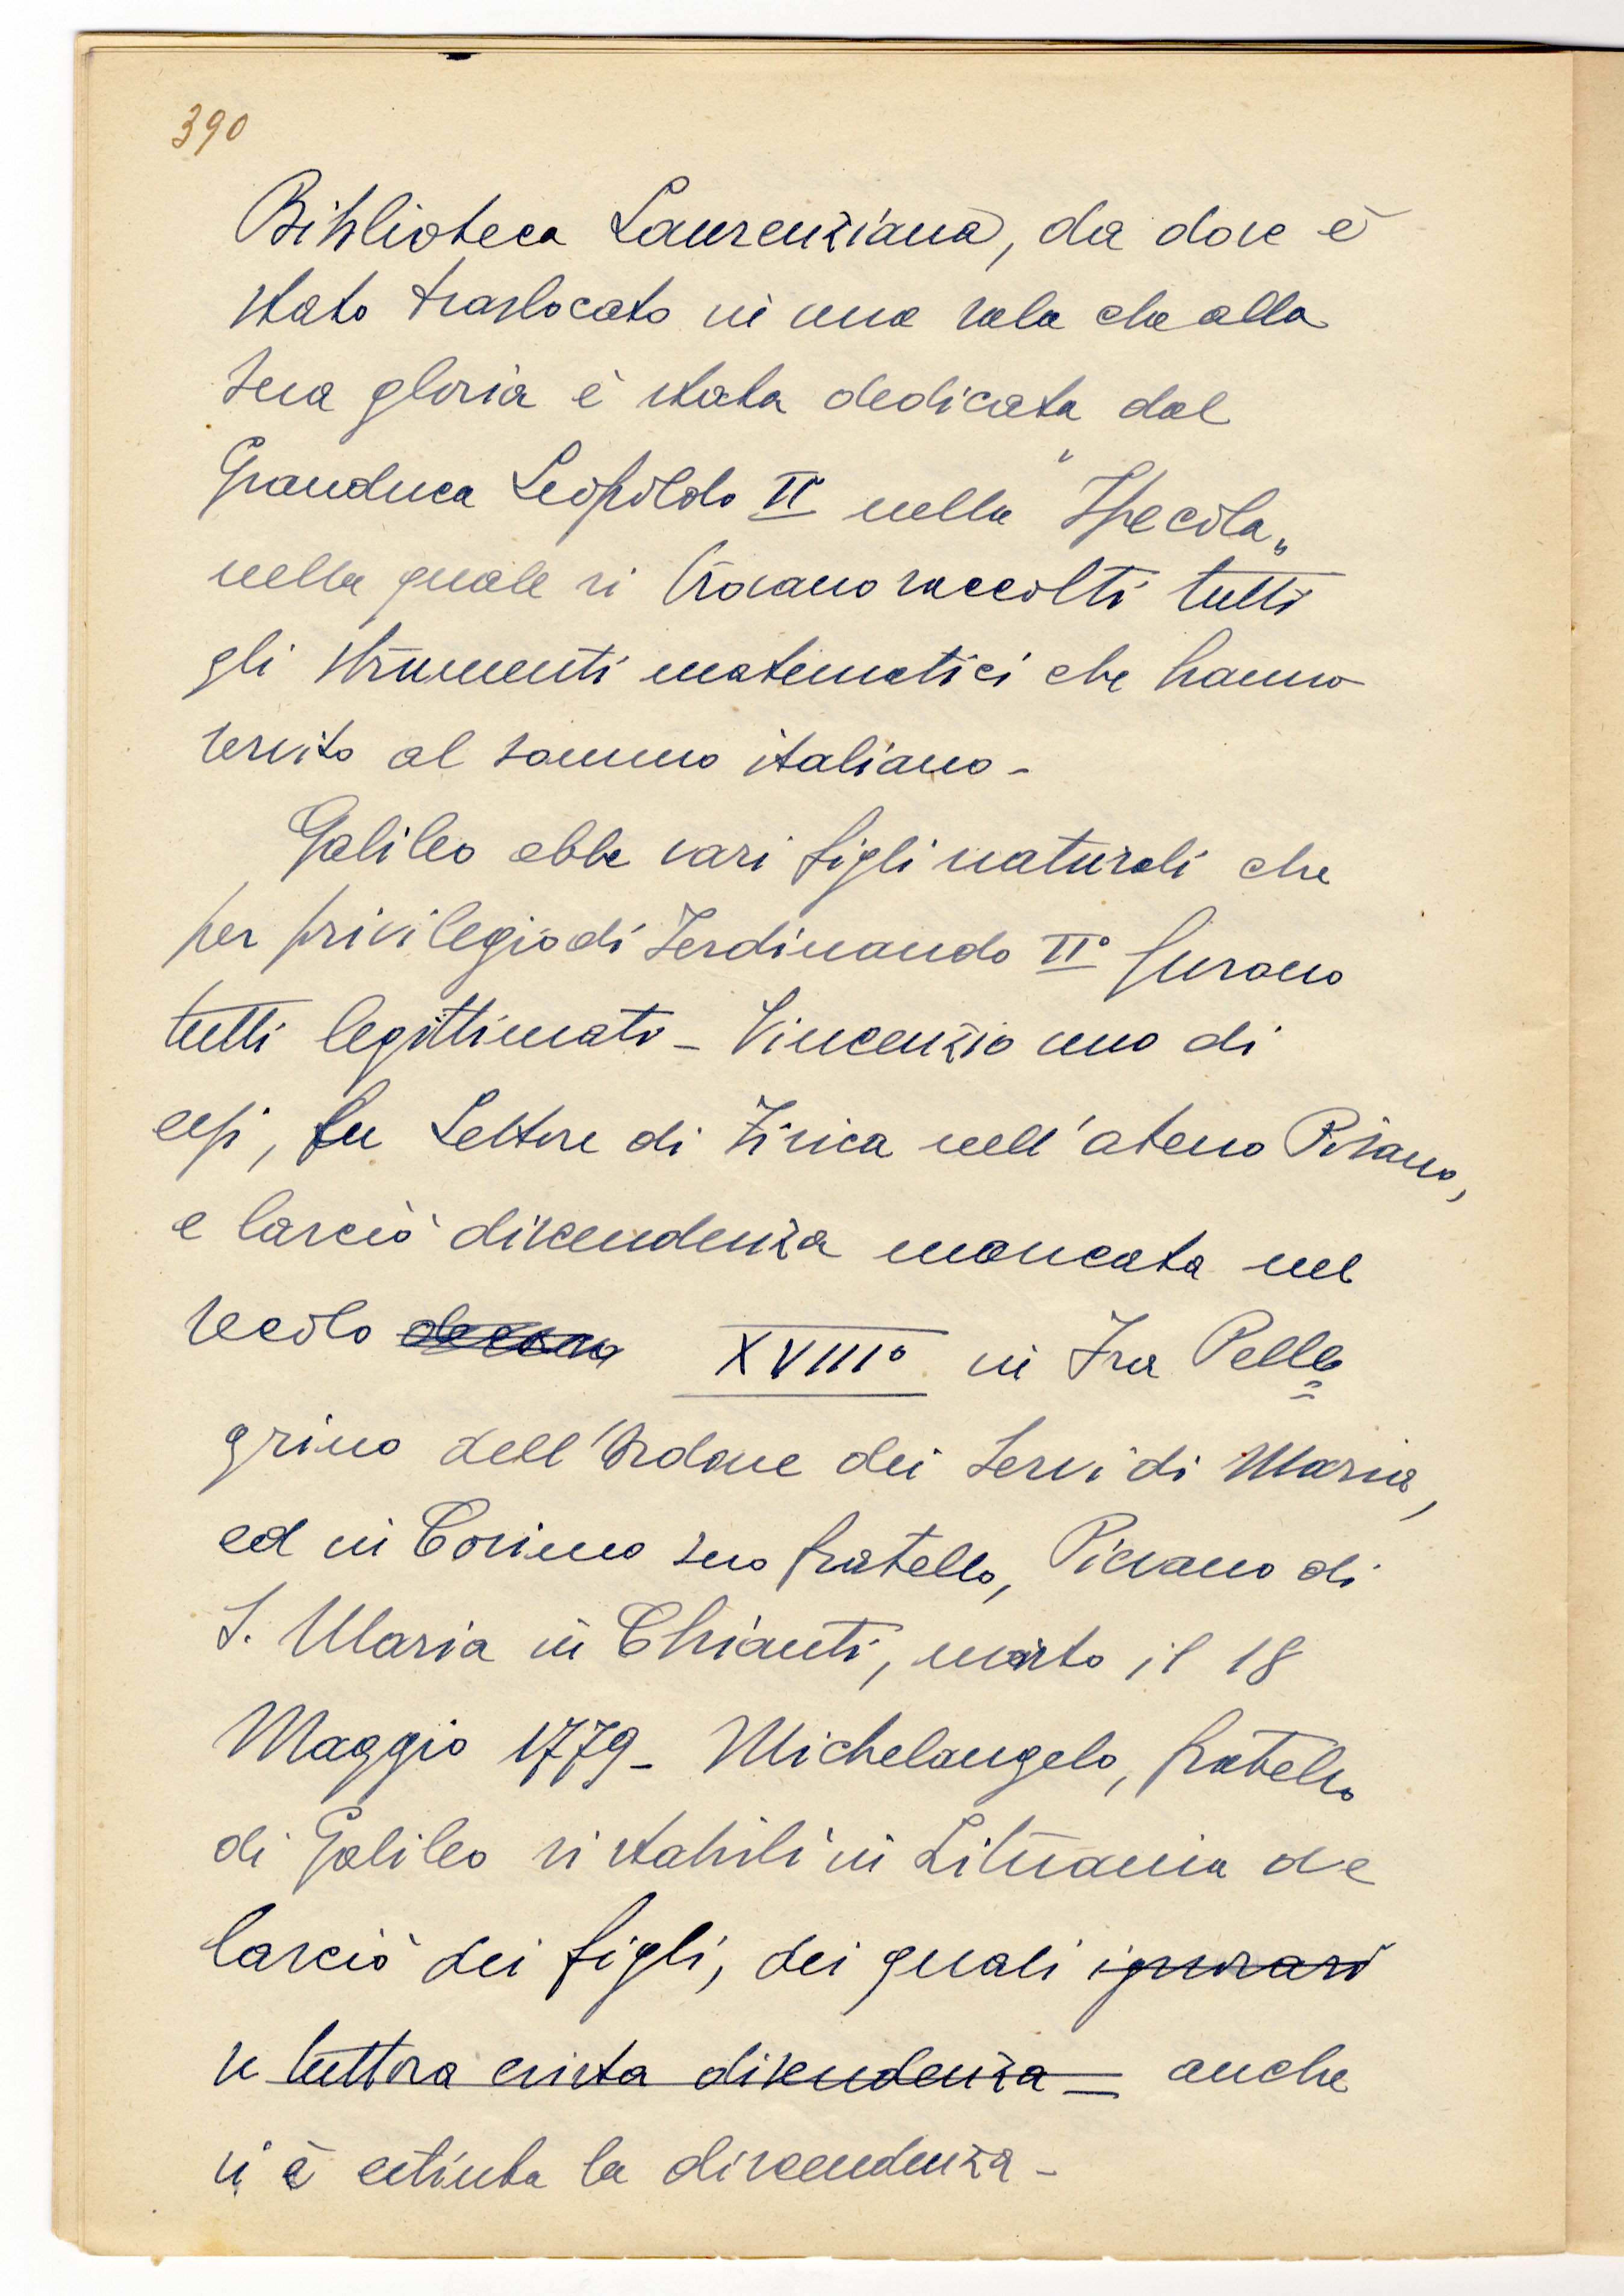 390
Biblioteca Laurenziana, da dove è
stato traslocato in una sala che alla
sua gloria è stata dedicata dal
Granduca Leopoldo II° nella "Specola„
nella quale si trovano raccolti tutti
gli strumenti matematici che hanno
servito al sommo italiano -
Galileo ebbe vari figli naturali che
per privilegio di Ferdinando II° furono
tutti legittimati - Vincenzio uno di
essi, fu Lettore di Fisica nell'ateneo Pisano,
e lasciò discendenza mancata nel
secolo XVIII° in Fra Pelle
grino dell'Ordine dei Servi di Maria,
ed in Cosimo suo fratello, Pievano di
S. Maria in Chianti, morto il 18
Maggio 1779 - Michelangelo, fratello
di Galileo si stabilì in Lituania de
lasciò dei figli, dei quali ignorasi
se tuttora esista discendenza - anche
si è estinta la discendenza -